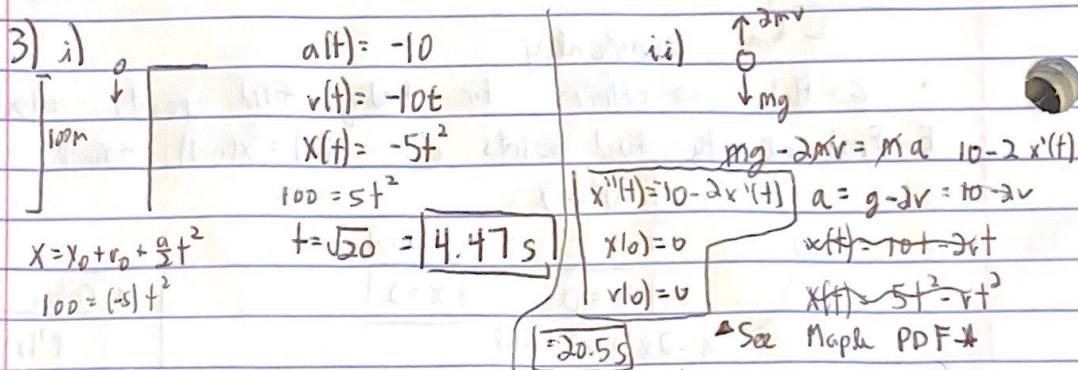 3) i)
100m
x = x₀ + v₀ + a/2 t²
100 = (-5) t²
a(t) = -10
v(t) = -10t
x(t) = -5t²
100 = 5t²
t = √20 = 4.47 s
ii)
2mv
mg
mg - 2mv = ma 10 - 2x'(t)
x''(t) = 10 - 2x'(t) a = g - 2v = 10 - 2v
x(0) = 0
v(0) = 0
x(t) = 5t² - vt²
= 20.5 s
See Maple PDF